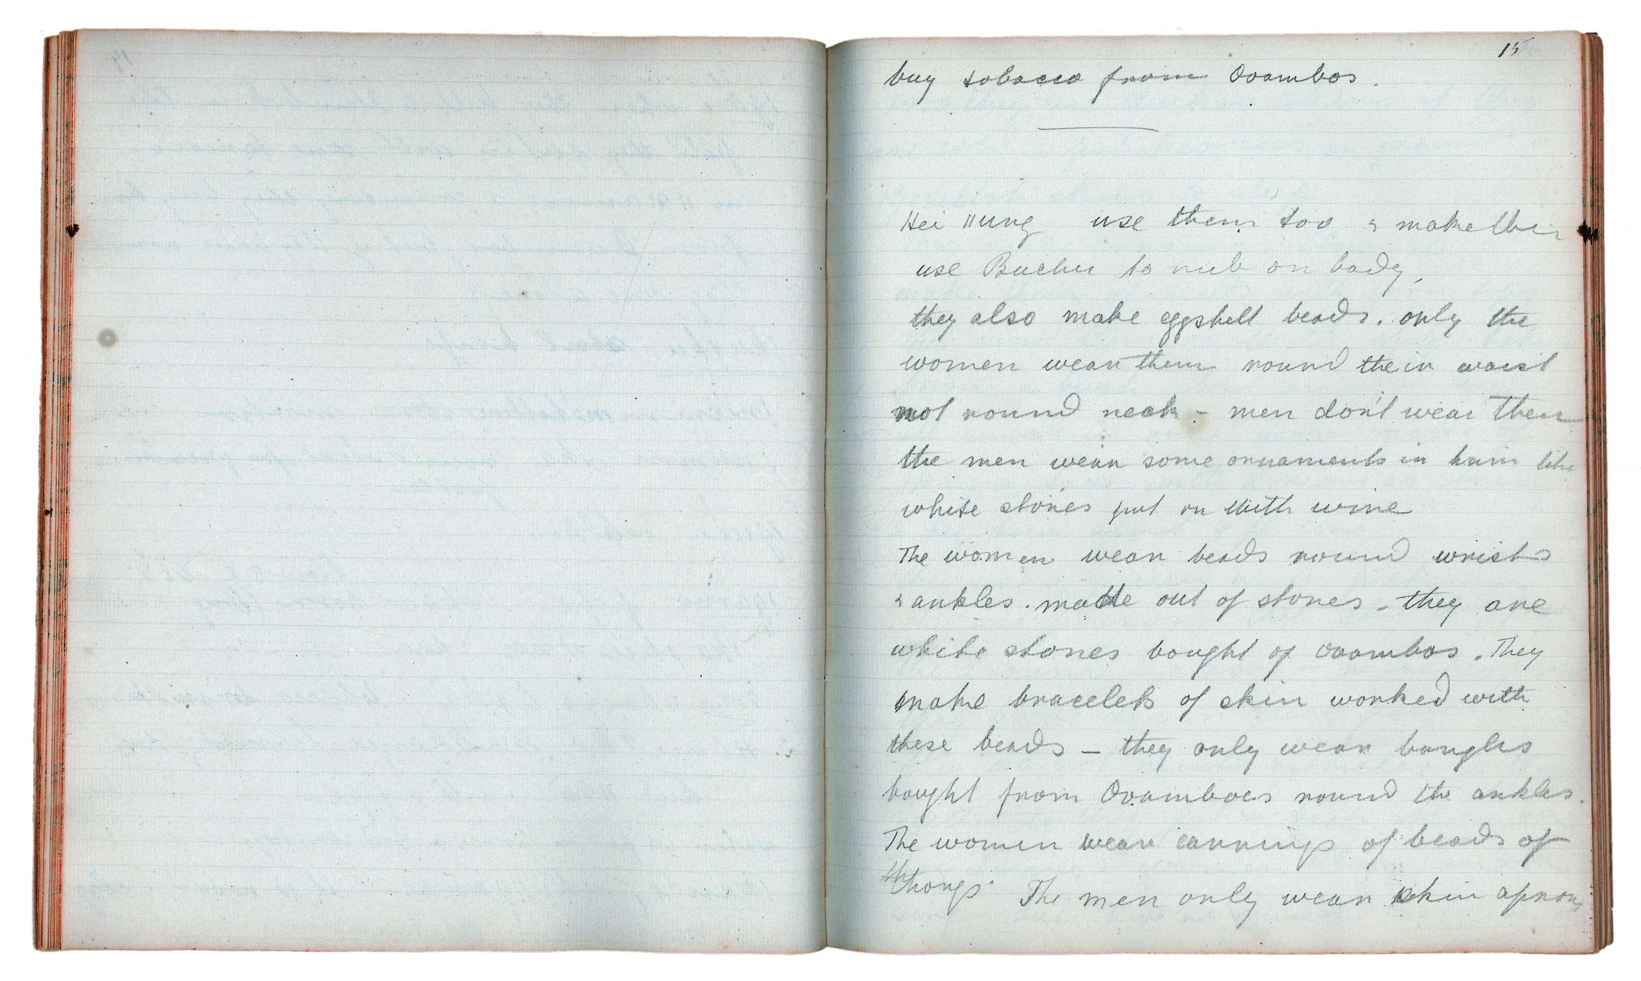 15
buy tobacco from Ovambos.
Hei ııung use them too & make their
use Buchu to rub on body,
they also make eggshell beads. only the
women wear them round their waist
not round neck - men don't wear them
the men wear some ornaments in hair like
white stones put on with wire
The women wear beads round wrists
& ankles. made out of stones - they are
white stones bought of ovambos. They
make bracelets of skin worked with
these beads - they only wear bangles
bought from Ovamboes round the ankles.
The women wear earrings of beads of
thongs. The men only wear skin aprons